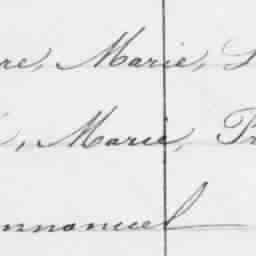 re, Marie,
, Marie,
nnanuel